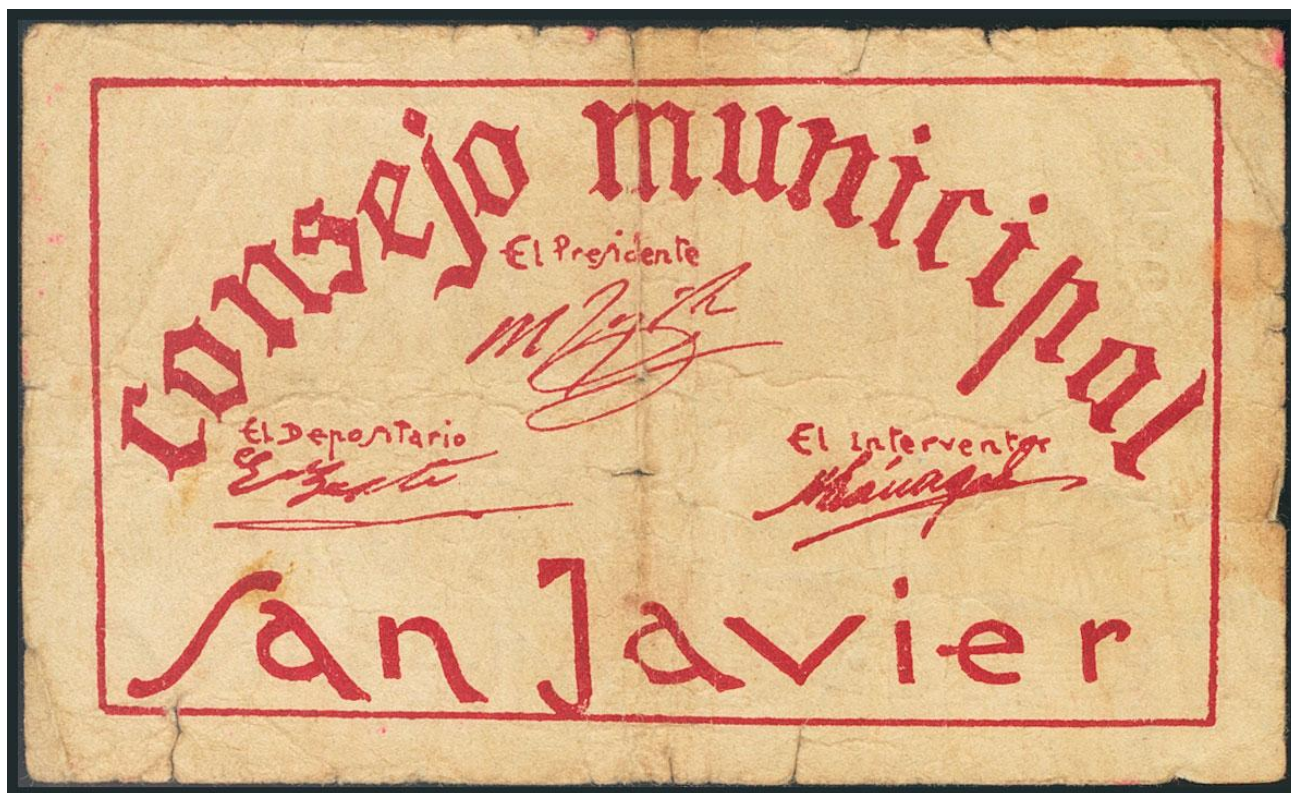 Consejo municipal
El Presidente
El Depositario
El Interventor
San Javier